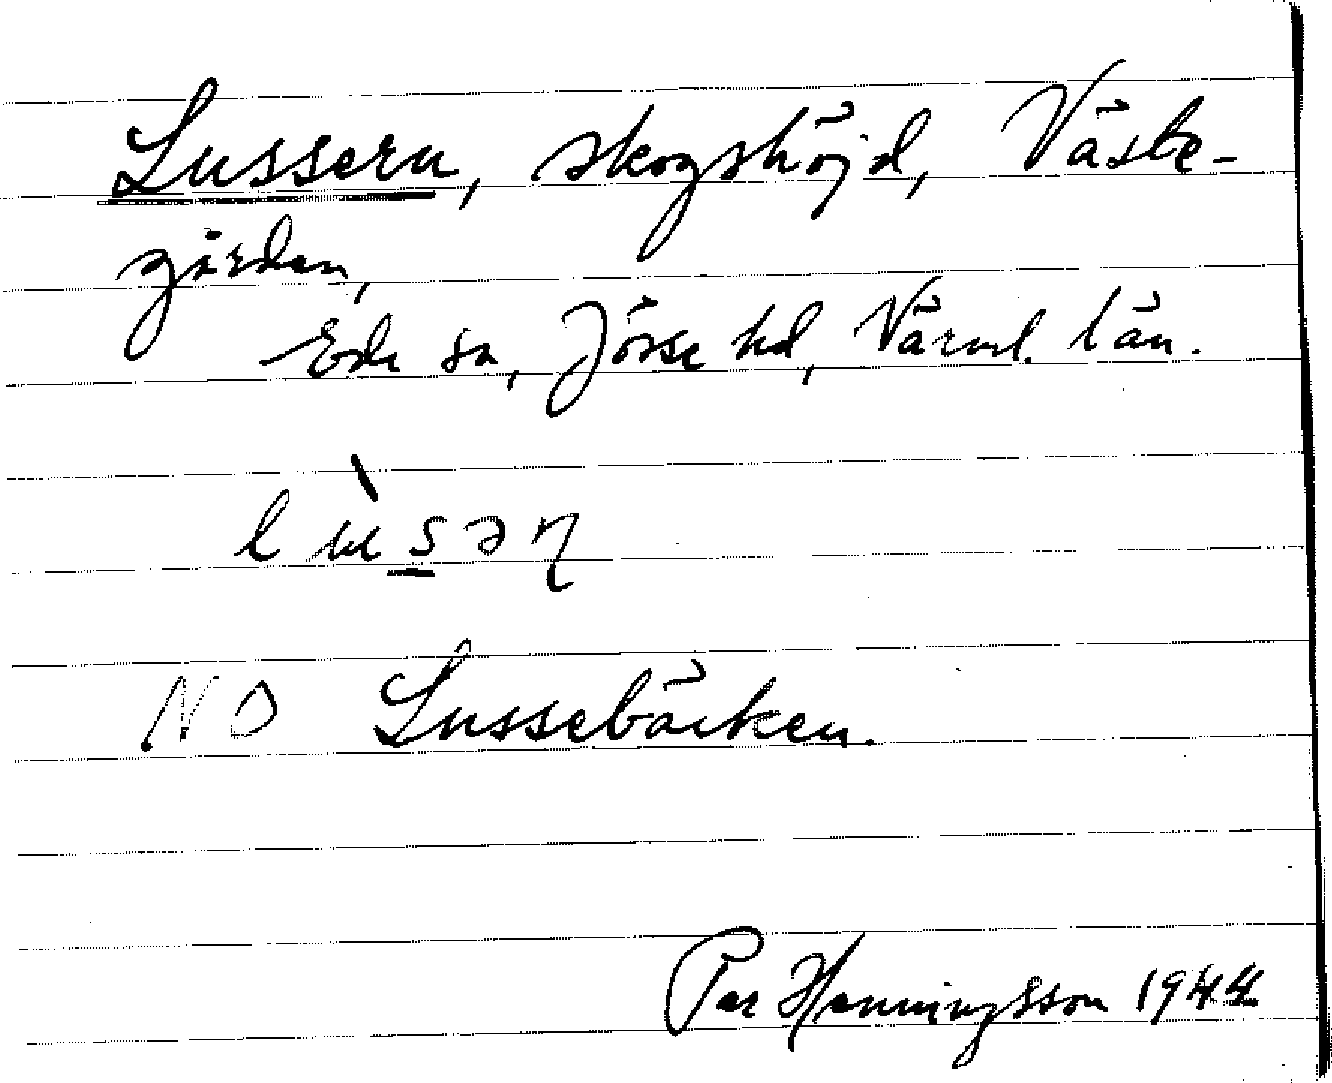 Lussern, skogshöjd, Väste-
gården,
Eda sn, Jösse hd, Värml. län.
lùsəɳ
NO Lussebäcken.
Per Henningsson 1944